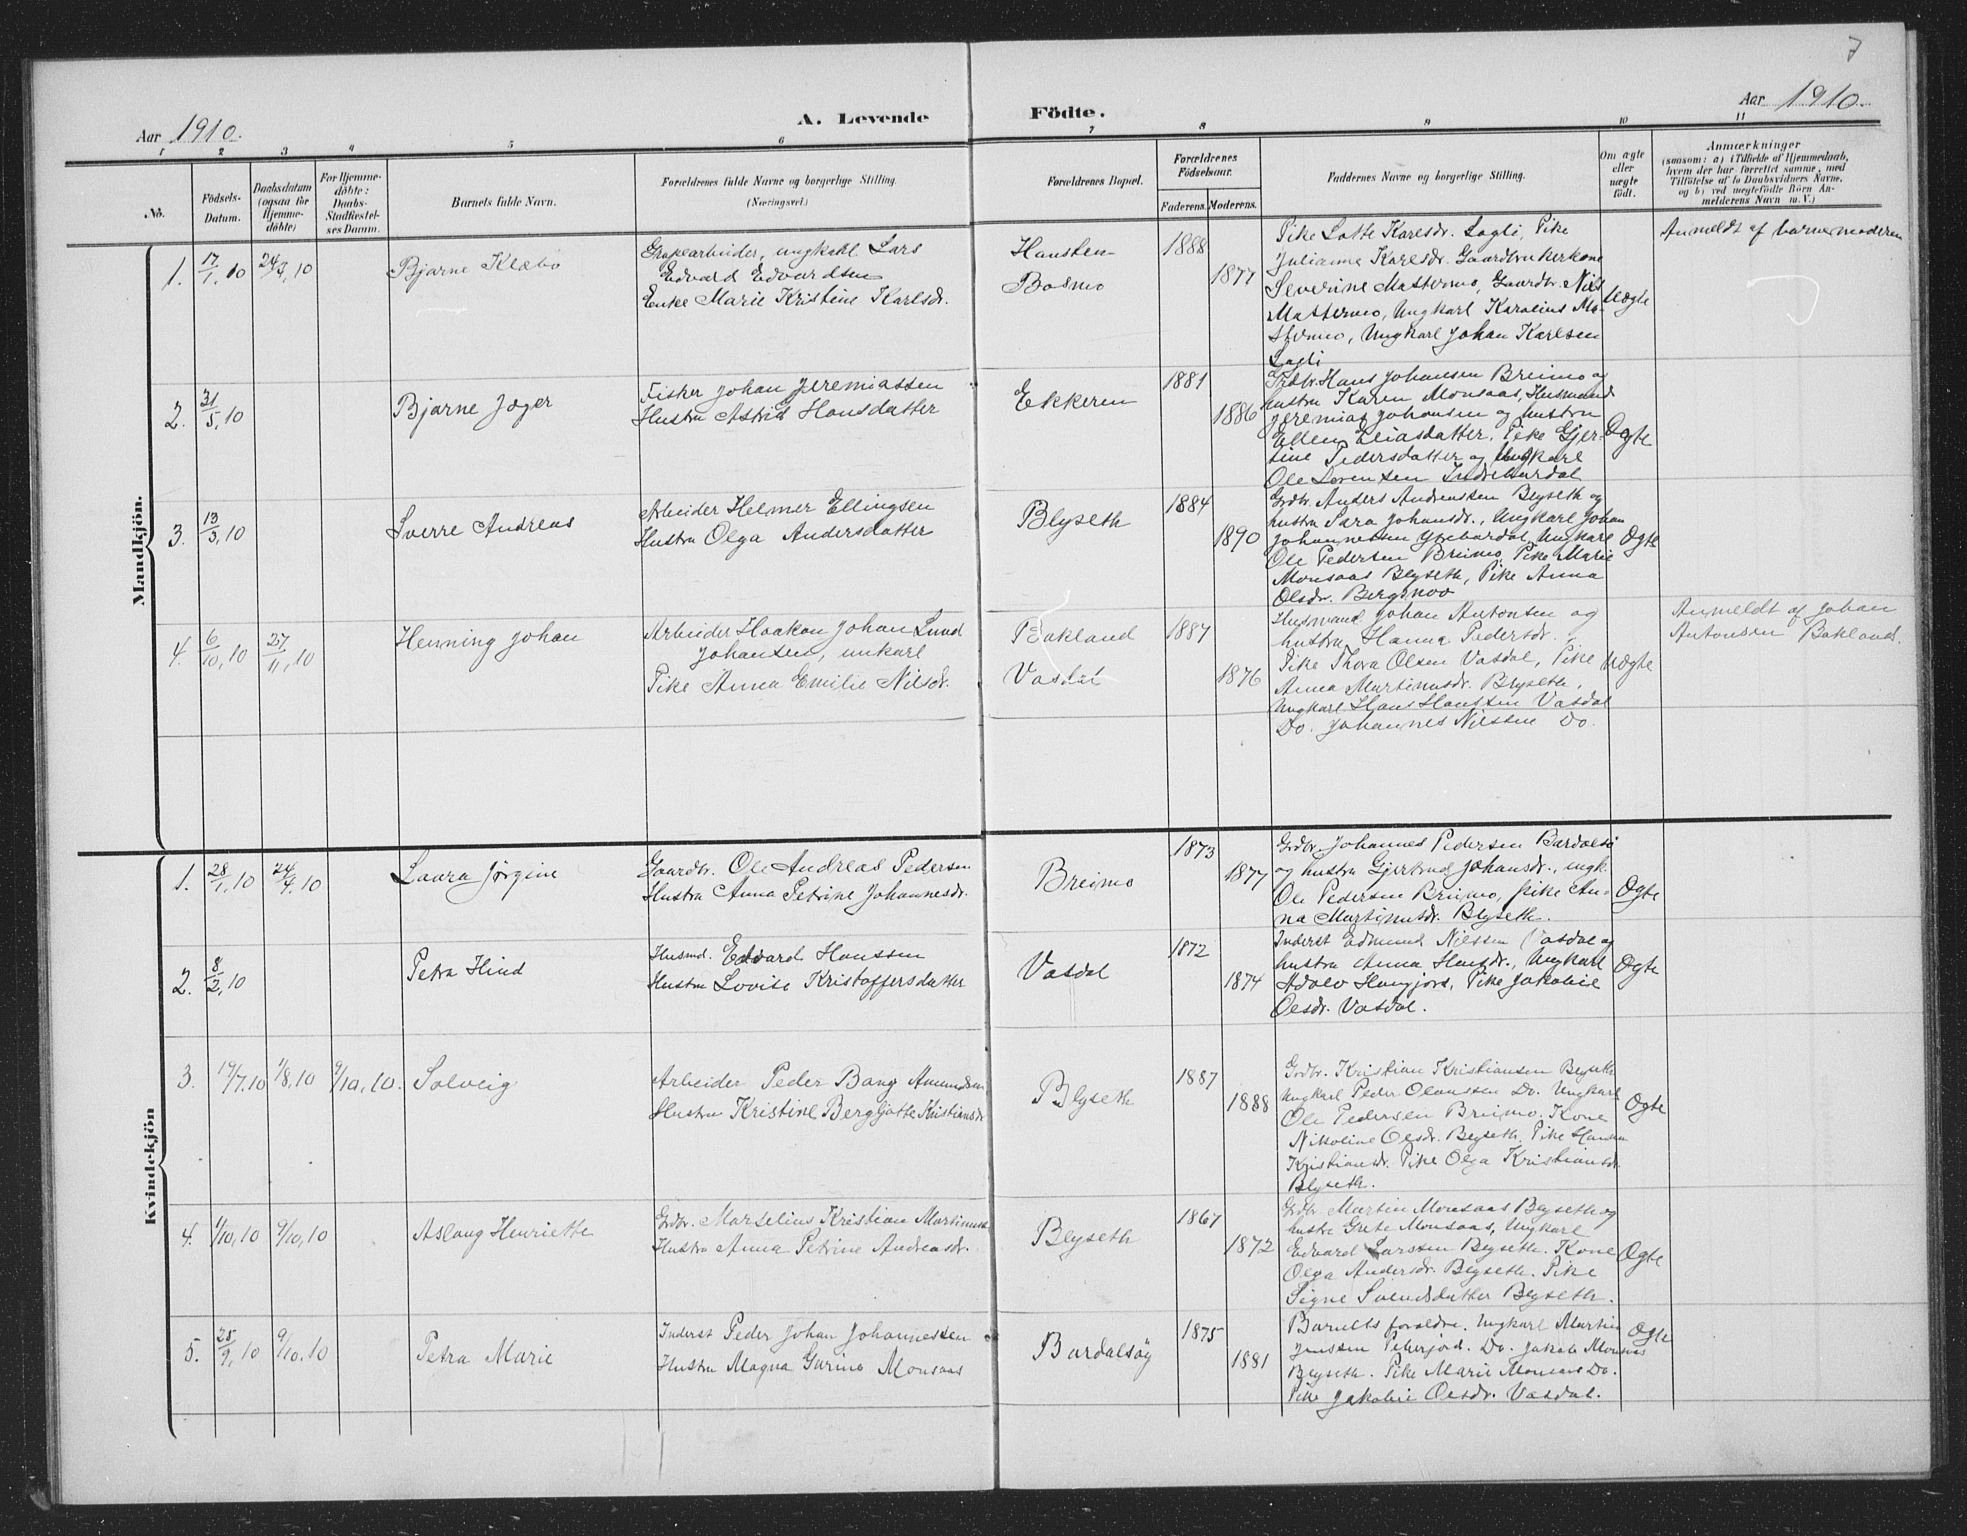 7
Aar 1910.
A. Levende
Födte.
Aar 1910.
1 2 3 4 5 6 7 8 9 10 11
No.
Födsels-
Datum.
Daabsdatum
(ogsaa for
Hjemme-
döbte)
For Hjemme-
döbte:
Daabs-
Stadfæstel-
ses Datum.
Barnets fulde Navn.
Forældrenes fulde Navne og borgerlige Stilling.
(Næringsvei.)
Forældrenes Bopæl.
Forældrenes
Födselsaar.
Faderens. Moderens.
Faddernes Navne og borgerlige Stilling.
Om ægte
eller
uægte
födt.
Anmærkninger
(saasom: a) i Tilfælde af Hjemmedaab,
hvem der har forrettet samme, med
Tilföielse af to Daabsvidners Navne,
og b) ved uegtefödte Börn An-
melderens Navn m. V.)
Mandkjön.
1. 17/1, 10 24/3, 10
Bjarne Klæbo
Grubearbeider, ungkarl Lars
Edvard Edvardsen
Enke Marie Kristine Karlsdr.
Bosmo
1888
1877
Pike Lotte Karlsdr. Lagli, Pike
Julianne Karlsdr. Gaardbrukerkone
Severine Mastermo, Gaardbr. Nils
Mastermo, Ungkarl Karolius Ma-
stermo, Ungkarl Johan Karlsen
Lagli
Uægte
Anmeldt af barnemoderen
2. 31/5, 10
Bjarne Jæger
Fisker Johan Jeremiassen
Hustru Astrid Hansdatter
Ekkeren
1881
1886
Grdbr. Hans Johansen Breimo og
hustru Karen Monsaas, Husmand
Jeremias Johansen og hustru
Ellen Eliasdatter, Pike Gjer-
tine Pedersdatter og Ungkarl
Ole Sørensen Indrebardal
Ægte
3. 13/3, 10
Sverre Andreas
Arbeider Helmer Ellingsen
Hustru Olga Andersdatter
Blyseth
1884
1890
Grdbr. Anders Andreassen Blyseth og
hustru Sara Johansdr., Ungkarl Johan
Johannessen Ytrebardal, Ungkarl
Ole Pedersen Breimo, Pike Marie
Monsaas Blyseth, Pike Anna
Olsdr. Bergsmoo
Ægte
4. 6/10, 10 27/11, 10
Henning Johan
Arbeider Haakon Johan Lund
Johansen, unkarl
Pike Anna Emilie Nilsdr.
Bakland
Vasdal
1887
1876
Husmand Johan Antonsen og
hustru Hanna Pedersdr.,
Pike Thora Olsen Vasdal, Pike
Anna Martinusdr. Blyseth,
Ungkarl Hans Hanssen Vasdal
Do. Johannes Nilssen Do.
Uægte
Anmeldt af Johan
Antonsen Bakland.
Kvindekjön
1. 28/1, 10 24/4, 10
Laura Jørgine
Gaardbr. Ole Andreas Pedersen
Hustru Anna Petrine Johannesdr.
Breimo
1873
1877
Grdbr. Johannes Pedersen Bardalsö
og hustru Gjertrud Johansdr., ungk.
Ole Pedersen Breimo, pike An-
na Martinusdr. Blyseth.
Ægte
2. 8/2, 10
Petra Hind
Husmd. Edvard Hanssen
Hustru Lovise Kristoffersdatter
Vasdal
1872
1874
Inderst Edmund Nilssen Vasdal og
hustru Anna Hansdr., Ungkarl
Adolv Haugjord, Pike Jakobie
Olsdr. Vasdal.
Ægte
3. 19/7.10 1/8,10 9/10,10.
Solveig
Arbeider Peder Bang Amundsen
Hustru Kristine Bergljotte Kristiansdr
Blyseth
1887
1888
Grdbr. Kristian Kristiansen Blyseth
Ungkarl Peder Olaussen Do. Ungkarl
Ole Pedersen Breimo, Kone
Nikoline Olsdr. Blyseth, Pike Hansine
Kristiansdr. Pike Olga Kristiansdr.
Blyseth.
Ægte
4. 1/10,10 9/10,10
Aslaug Henriette
Grdbr. Marselius Kristian Martinussen
Hustru Anna Petrine Andreasdr.
Blyseth
1867
1872
Grdbr. Martin Monsaas Blyseth og
hustru Grete Monsaas, Ungkarl
Edvard Larssen Blyseth. Kone
Olga Andersdr. Blyseth. Pike
Signe Svendsdatter Blyseth.
Ægte
5. 25/9, 10 9/10.10
Petra Marie
Inderst Peder Johan Johannessen
Hustru Magna Gurine Monsaas
Bardalsöy
1875
1881
Barnets foraldre. Ungkarl Martin
Jenssen Do. Jakob Monsaas
Blyseth. Pike Marie Monsaas Do.
Pike Jakobie Olsdr. Vasdal.
Ægte